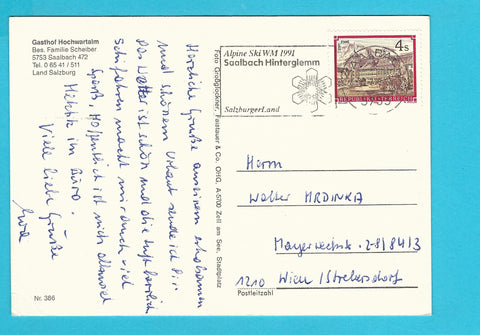 Gasthof Hochwartalm
Bes. Familie Scheiber
5753 Saalbach 472
Tel. 0 65 41 / 511
Land Salzburg
Herzliche Grüße aus einem erholsamen
und schönem Urlaub sende ich Dir.
Das Wetter ist schön und die Luft herrlich
Schifahren macht mir auch viel
Spaß, Hoffentlich ist nicht allzuviel
im Büro.
Viele liebe Grüße
Nr. 386
Foto Großglockner, Faistauer & Co. OHG, A-5700 Zell am See, Stadtplatz
Alpine Ski WM 1991
Saalbach Hinterglemm
SalzburgerLand
4s
REPUBLIK ÖSTERREICH
Herrn
Walter HRDINKA
2-8/84/3
1210 Wien / Strebersdorf
Postleitzahl